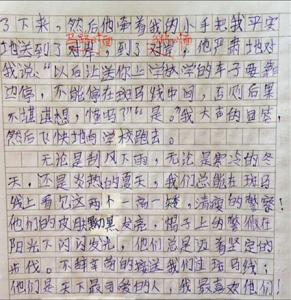 了下来，然后他牵着我的小手把我平安
马路对面 马路对面
地送到了对岸，到了对岸，他严肃地对
我说：“以后让送你上学放学的车子要靠
边停，不能停在斑马线中间，否则后果
不堪设想，懂吗？”“是。”我大声的回答，
然后飞快地向学校跑去。
无论是刮风下雨，无论是寒冷的冬
天，还是炎热的夏天，我们总能在斑马
线上看见这两个高，瘦的警察！
他们的皮肤黝黑发亮，帽子上的警徽在
阳光下闪闪发光，他们总是迈着坚定的
步伐。不辞辛苦的接送我们过斑马线；
他们是天下最可爱的人，我最喜欢他们！